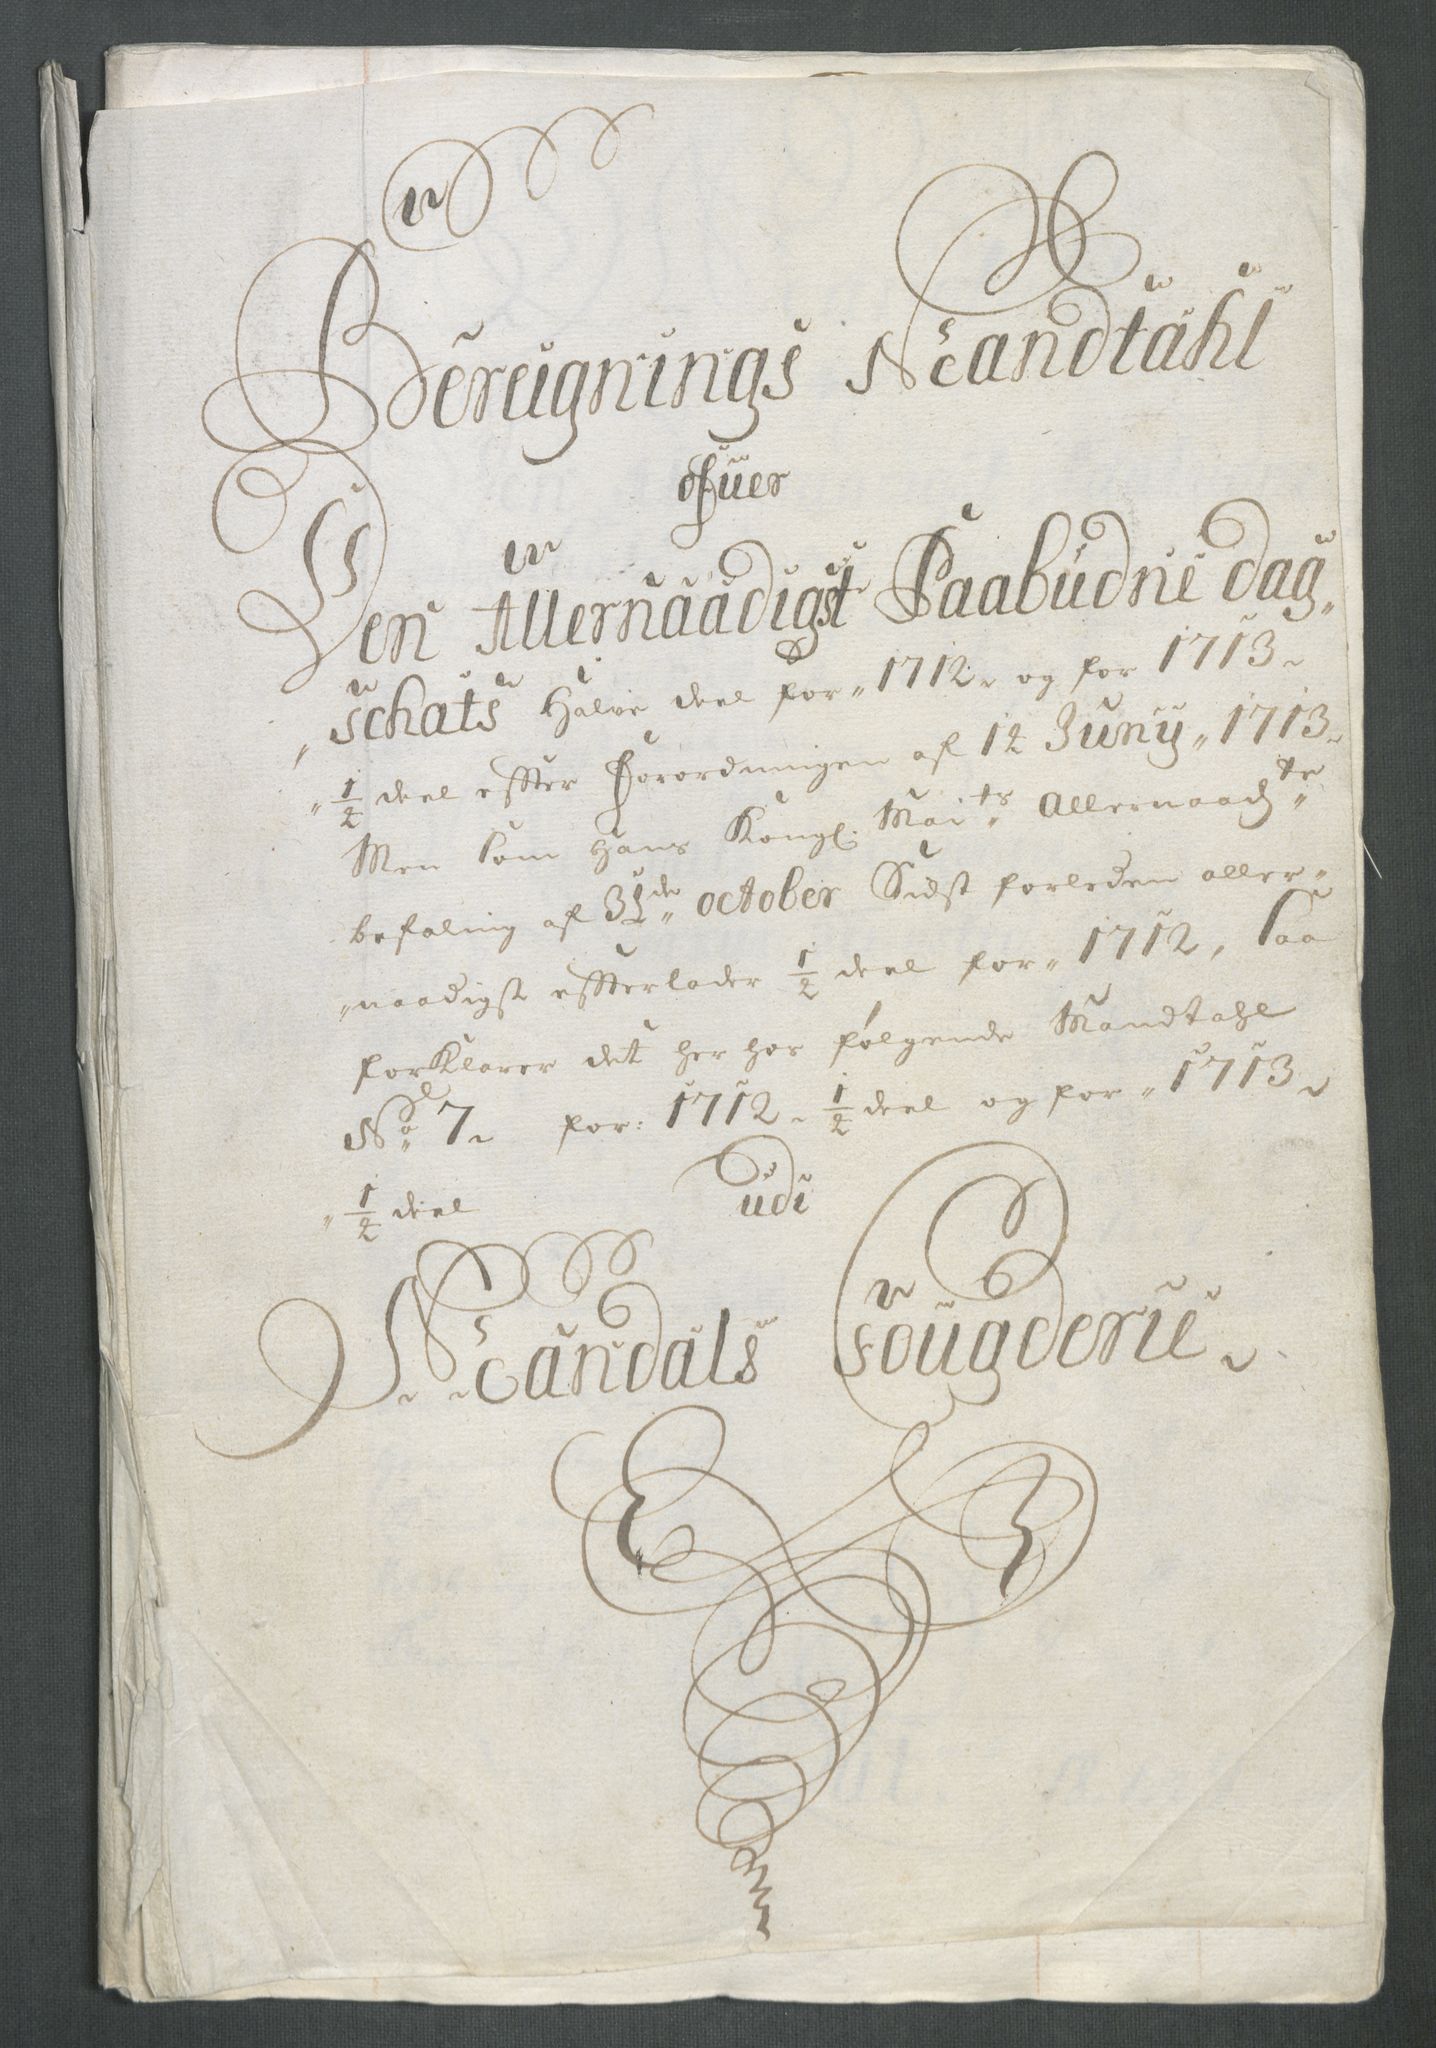 Bereignings Mandtahl
Ofuer
Den Allernaadigst Paabudne dag„
„Schats Halve deel for„ 1712„ og for 1713„
„½ deel effter Forordningen af 12 Juny„ 1713„
Men som Hans Kongl: Mai„ts Allernaad„te
befaling af 31„de October Sidst forleden aller„
„naadigst effterlader ½ deel for„ 1712, saa
forklarer det her hos følgende Mandtahl
No 7„ for: 1712„ ½ deel og for„ 1713„
„½ deel udi
Mandals fougderie„